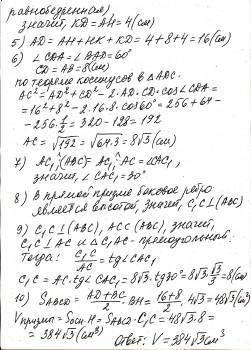 равнобедренная)
значит, KD = AH = 4 (см)
5) AD = AH + HK + KD = 4 + 8 + 4 = 16 (см)
6) ∠CDA = ∠BAD = 60°
CD = AB = 8 (см)
по теореме косинусов в △ADC:
AC² = AD² + CD² - 2·AD·CD·cos∠CDA =
= 16² + 8² - 2·16·8·cos60° = 256 + 64 -
- 256·1/2 = 320 - 128 = 192
AC = √192 = √64·3 = 8√3 (см)
7) AC₁^(ABC) = AC₁^AC = ∠CAC₁,
значит, ∠CAC₁ = 30°
8) В прямой призме боковое ребро
является высотой, значит, C₁C⊥(ABC)
9) C₁C⊥(ABC), AC⊂(ABC), значит,
C₁C⊥AC и △C₁AC - прямоугольный.
Тогда: C₁C/AC = tg∠CAC₁
C₁C = AC·tg∠CAC₁ = 8√3·tg30° = 8√3·√3/3 = 8 (см)
10) SABCD = AD+BC/2·BH = 16+8/2·4√3 = 48√3 (см²)
Vпризмы = Sосн.·H = SABCD·C₁C = 48√3·8 =
= 384√3 (см³) Ответ: V = 384√3 см³